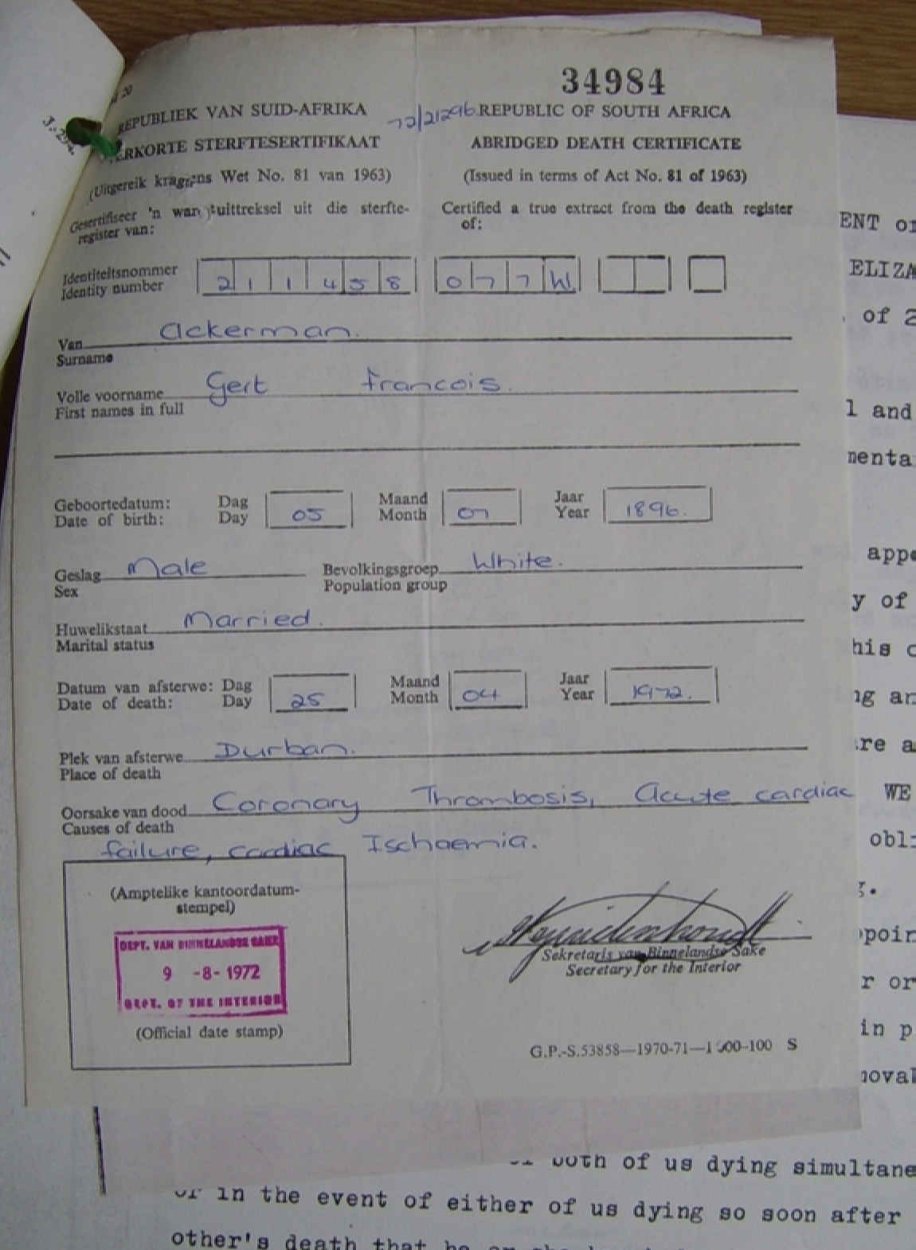 34984
REPUBLIEK VAN SUID-AFRIKA
72/21296 REPUBLIC OF SOUTH AFRICA
ERKORTE STERFTESERTIFIKAAT
ABRIDGED DEATH CERTIFICATE
(Uitgereik kragtens Wet No. 81 van 1963)
(Issued in terms of Act No. 81 of 1963)
Gesertifiseer 'n ware uittreksel uit die sterfte-
register van:
Certified a true extract from the death register
of:
Identiteitsnommer
Identity number 211458 077W
Van Ackerman.
Surname
Volle voorname Gert Francois.
First names in full
Geboortedatum: Dag Maand Jaar
Date of birth: Day 05 Month 07 Year 1896.
Geslag Male Bevolkingsgroep White.
Sex Population group
Huwelikstaat Married.
Marital status
Datum van afsterwe: Dag Maand Jaar
Date of death: Day 25 Month 04 Year 1972.
Plek van afsterwe Durban.
Place of death
Oorsake van dood Coronary Thrombosis, Acute cardiac
Causes of death
failure, cardiac Ischaemia.
(Amptelike kantoordatum-
stempel)
DEPT. VAN BINNELANDSE SAKE
9 -8-1972
DEPT. OF THE INTERIOR
(Official date stamp)
Sekretaris van Binnelandse Sake
Secretary for the Interior
G.P.-S.53858—1970-71—1 00-100 S
ENT
ELIZA
of 2
l and
menta
appe
y of
his
ng an
re a
WE
obli
poin
r or
in p
moval
both of us dying simultane
or in the event of either of us dying so soon after
other's death that he or she